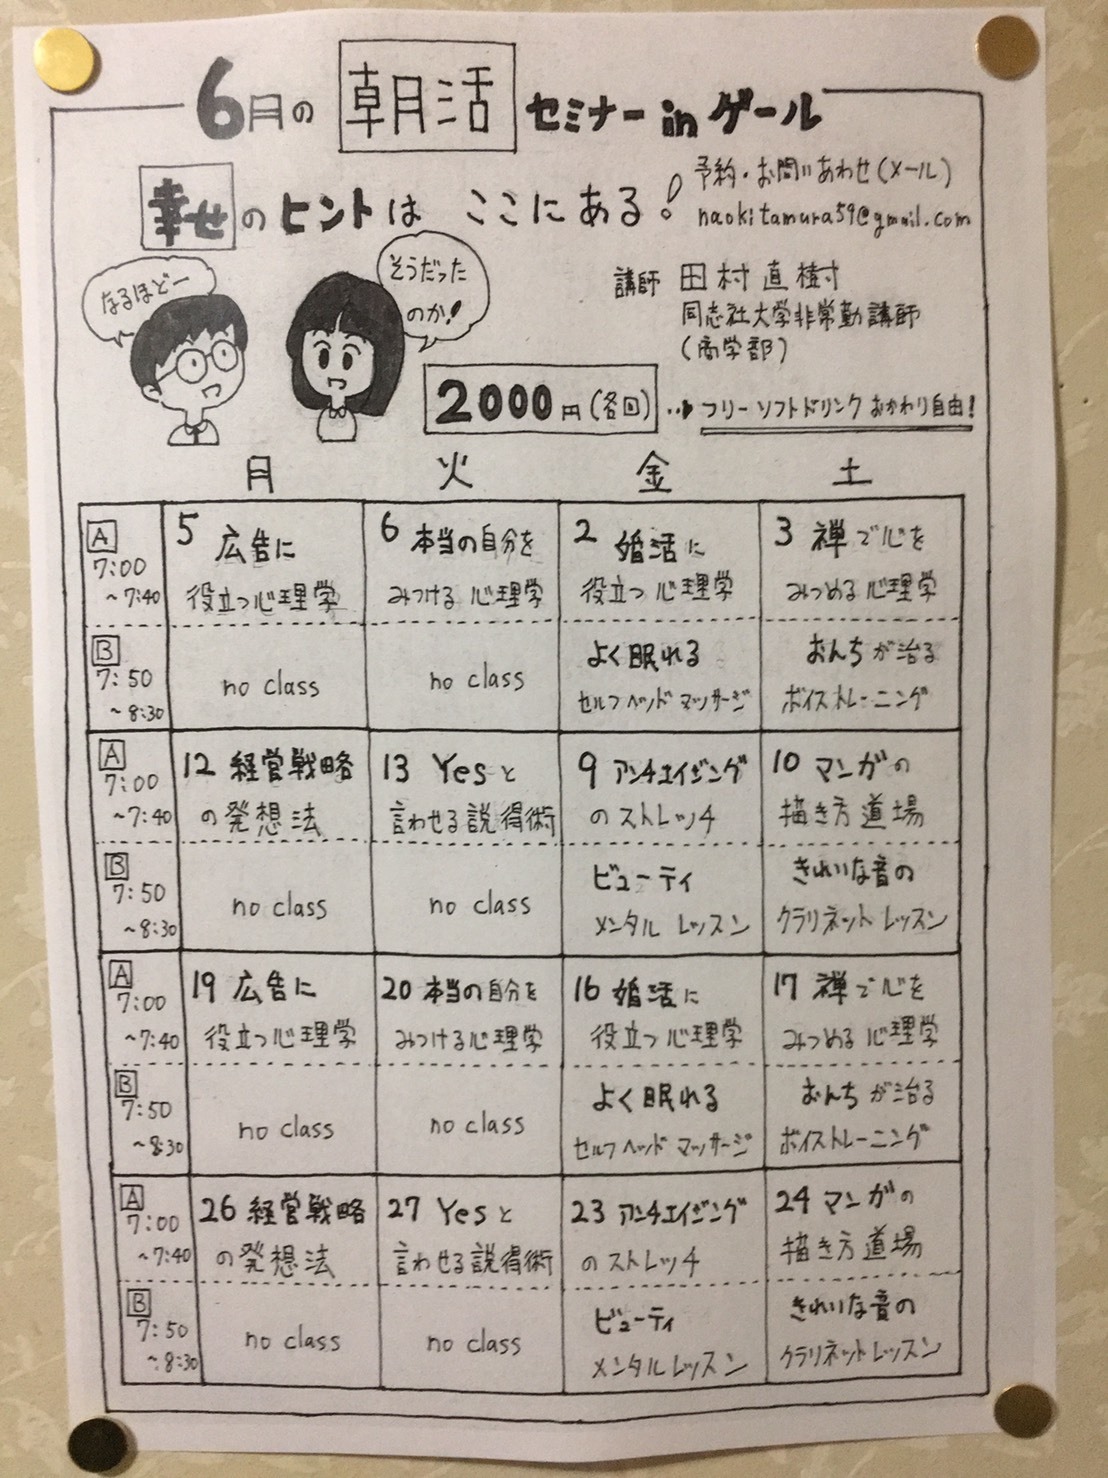 6月の 朝活 セミナー in ゲール
幸せのヒントは ここにある!
予約・お問いあわせ(メール)
naokitamura59@gmail.com
なるほどー
そうだった
のか!
講師 田村直樹
同志社大学非常勤講師
(商学部)
2000円(各回) フリーソフトドリンク おかわり自由!
月 火 金 土
A
7:00
~7:40
5 広告に
役立つ心理学
6 本当の自分を
みつける心理学
2 婚活に
役立つ心理学
3 禅で心を
みつめる心理学
B
7:50
~8:30
no class
no class
よく眠れる
セルフヘッドマッサージ
おんちが治る
ボイストレーニング
A
7:00
~7:40
12 経営戦略
の発想法
13 Yesと
言わせる説得術
9 アンチエイジング
のストレッチ
10 マンガの
描き方道場
B
7:50
~8:30
no class
no class
ビューティ
メンタルレッスン
きれいな音の
クラリネットレッスン
A
7:00
~7:40
19 広告に
役立つ心理学
20 本当の自分を
みつける心理学
16 婚活に
役立つ心理学
17 禅で心を
みつめる心理学
B
7:50
~8:30
no class
no class
よく眠れる
セルフヘッドマッサージ
おんちが治る
ボイストレーニング
A
7:00
~7:40
26 経営戦略
の発想法
27 Yesと
言わせる説得術
23 アンチエイジング
のストレッチ
24 マンガの
描き方道場
B
7:50
~8:30
no class
no class
ビューティ
メンタルレッスン
きれいな音の
クラリネットレッスン